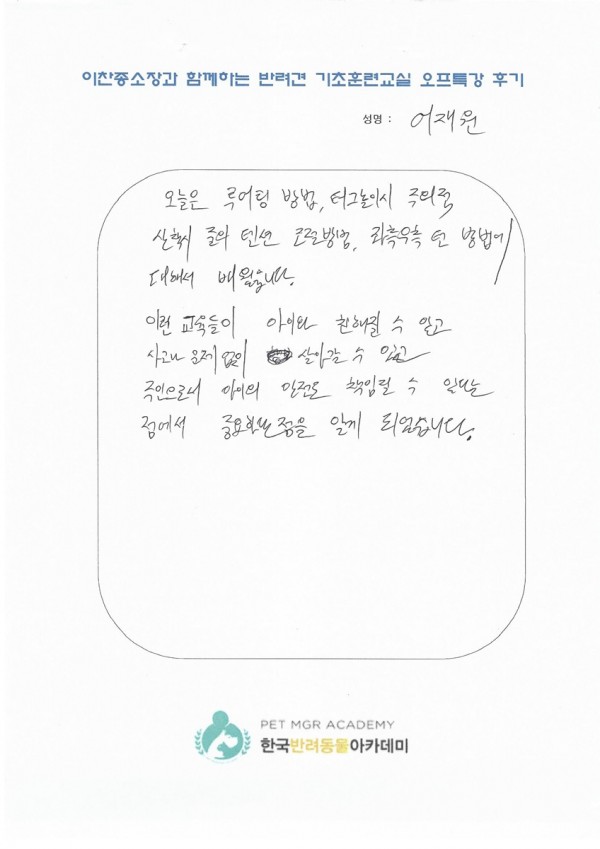 이찬종소장과 함께하는 반려견 기초훈련교실 오프특강 후기
성명 : 어재원
오늘은 루어팅 방법, 터그놀이시 주의점
산책시 줄의 텐션 조절방법, 좌측우측 턴 방법에
대해서 배웠습니다.
이런 교육들이 아이와 친해질 수 있고
사고나 문제 없이 살아갈 수 있고
주인으로서 아이의 안전도 책임질 수 있다는
점에서 중요하단 점을 알게 되었습니다.
PET MGR ACADEMY
한국반려동물아카데미